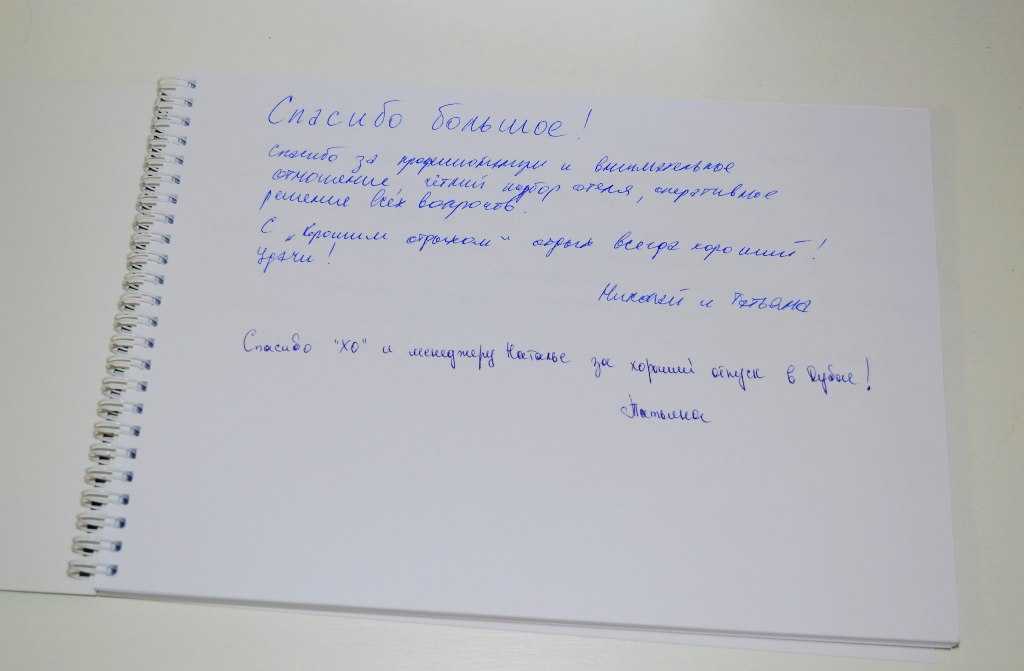 Спасибо большое!
Спасибо за профессионализм и внимательное
отношение, чёткий подбор отеля, оперативное
решение всех вопросов.
С "Хорошим отдыхом" отдых всегда хороший!
Удачи!
Николай и Татьяна
Спасибо "ХО" и менеджеру Наталье за хороший отпуск в Дубае!
Татьяна